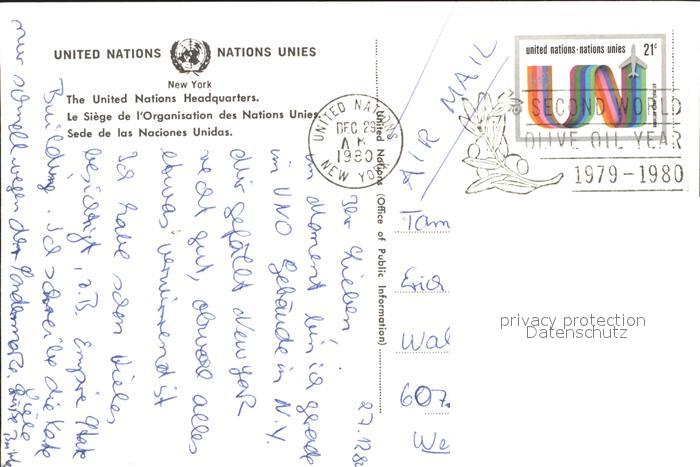 UNITED NATIONS NATIONS UNIES
New York
The United Nations Headquarters.
Le Siège de l'Organisation des Nations Unies.
Sede de las Naciones Unidas.
United Nations (Office of Public Information)
UNITED NATIONS
DEC 29
AM
1980
NEW YORK
AIR MAIL
united nations·nations unies 21c
UN
SECOND WORLD
OLIVE OIL YEAR
1979-1980
27.12.80
Ihr Lieben,
im Moment bin ich gerade
im UNO Gebäude in N.Y.
gefällt New York
recht gut, obwohl alles
etwas verwirrend ist
Ich habe schon Vieles
besichtigt, z.B. Empire State
Building. Ich schreibe die Karte
nur schnell wegen der Sondermarke. Viele
Grüße
Tam
Erica
Wal
607
We
privacy protection
Datenschutz